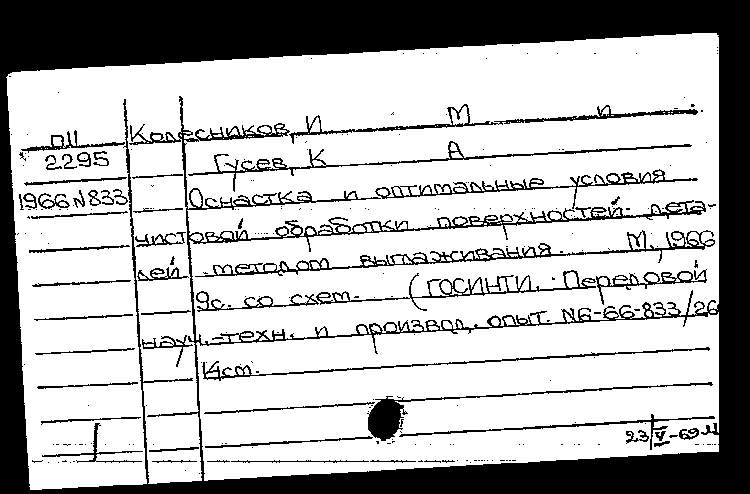 П11 Колесников, И М и
2295 Гусев, К А
1966 N 833 Оснастка и оптимальные условия
чистовой обработки поверхностей дета-
лей методом выглаживания. М., 1966
9с. со схем. (ГОСИНТИ. Передовой
науч.-техн. и производ. опыт. N6-66-833/26
14ст.
23/V-69 м